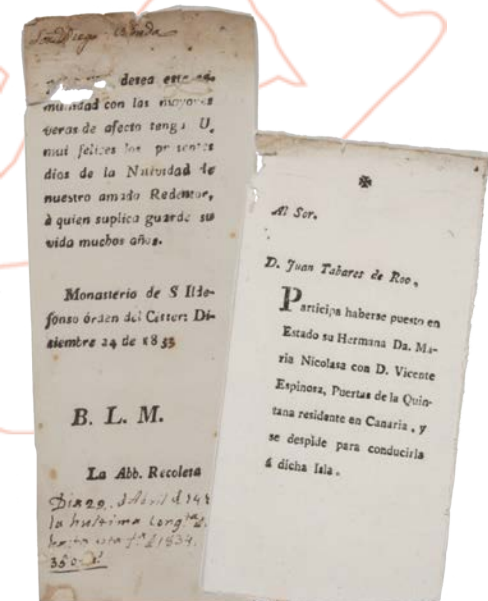 Don Diego
desea esta co-
munidad con las mayores
veras de afecto tenga U.
mui felices los presentes
dias de la Natividad de
nuestro amado Redentor,
à quien suplica guarde su
vida muchos años.
Monasterio de S Ilde-
fonso órden del Cister: Di-
siembre 24 de 1833
B. L. M.
La Abb. Recoleta
Dia 29. d Abril d
la hultima
hasta esta fha. d 1834.
✠
Al Sor.
D. Juan Tabares de Roo,
Participa haberse puesto en
Estado su Hermana Da. Ma-
ria Nicolasa con D. Vicente
Espinosa, Puertas de la Quin-
tana residente en Canaria, y
se despide para conducirla
á dicha Isla.